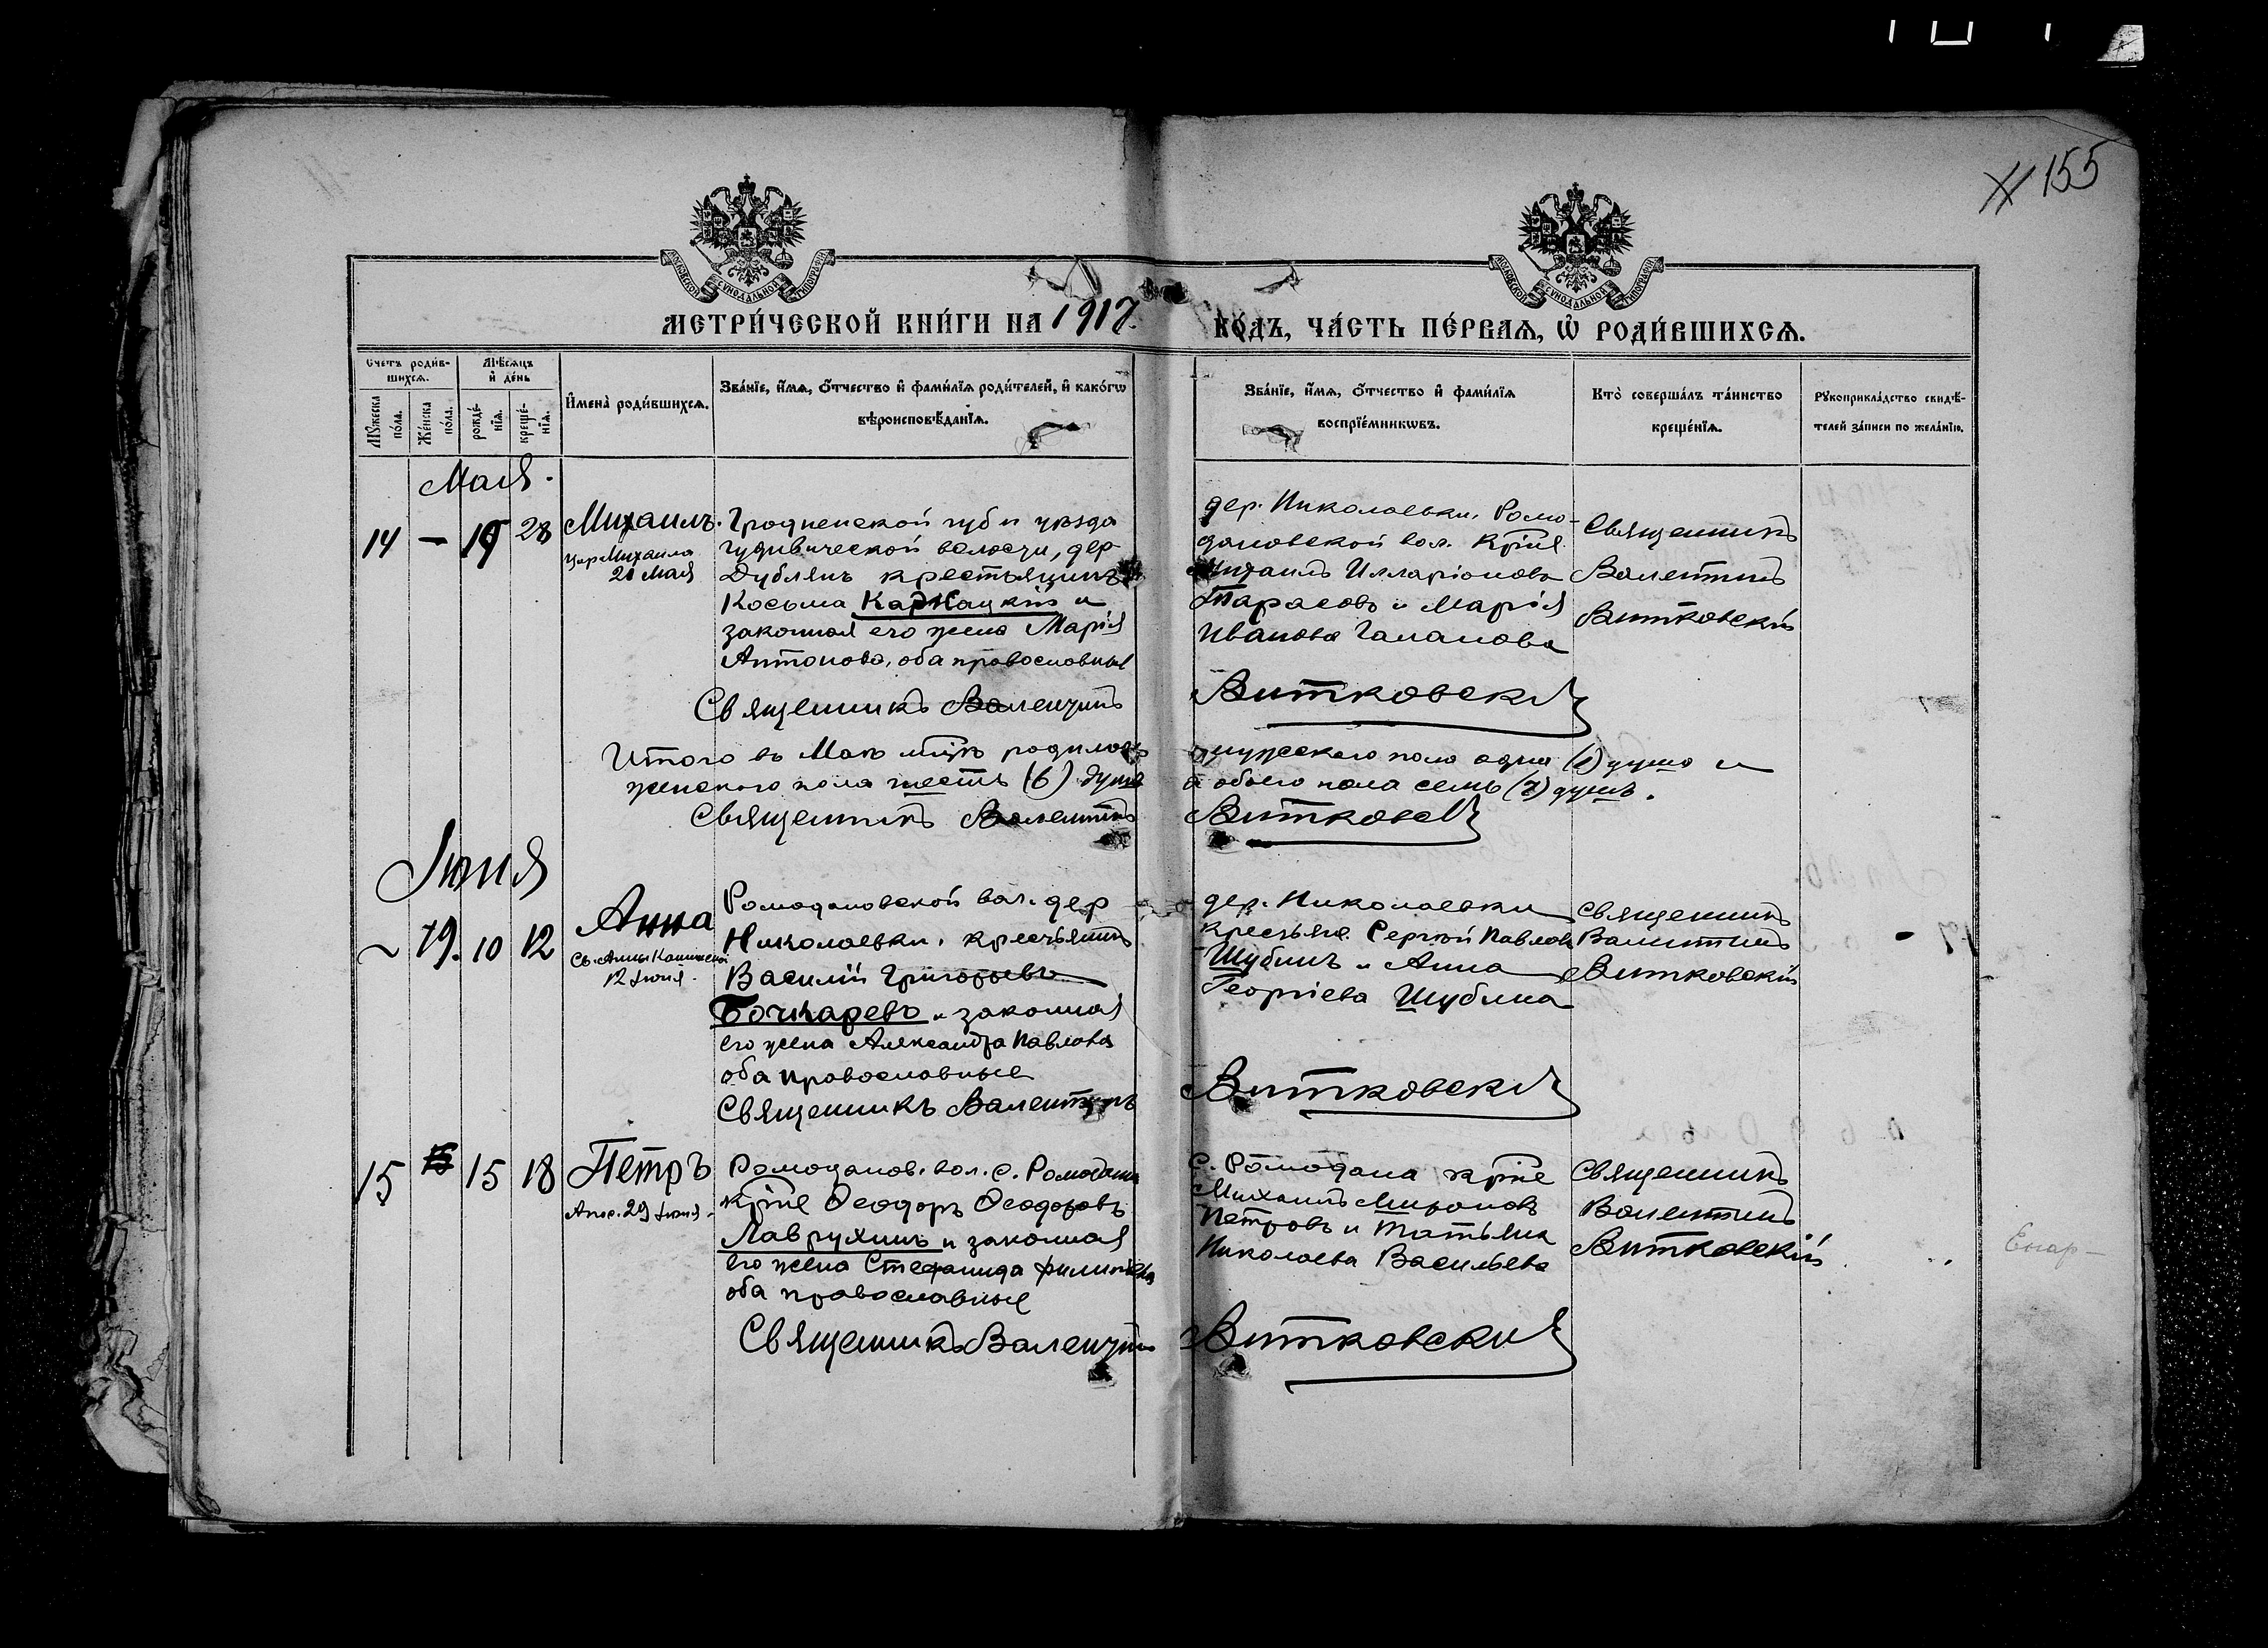 155
МОСКОВСКОЙ СѴНОДАЛЬНОЙ ТИПОГРАФІИ
МОСКОВСКОЙ СѴНОДАЛЬНОЙ ТИПОГРАФІИ
МЕТРИ́ЧЕСКОЙ КНИ́ГИ НА 1917
ГО́ДЪ, ЧА́СТЬ ПЕ́РВАѦ, Ѡ҆ РОДИ́ВШИХСѦ.
Счетъ роди́в-
шихсѧ.
Мѣ́сѧцъ
и҆ де́нь
Мꙋ́жеска
по́ла.
Же́нска
по́ла.
рожде́-
нїѧ.
креще́-
нїѧ.
И҆мена̀ роди́вшихсѧ.
Зва́нїе, и҆́мѧ, ѻ҆́тчество и҆ фами́лїѧ роди́телей, и҆ како́гѡ
вѣроисповѣ́данїѧ.
Зва́нїе, и҆́мѧ, ѻ҆́тчество и҆ фами́лїѧ
воспрїе́мникѡвъ.
Кто̀ соверша́лъ та́инство
креще́нїѧ.
Рꙋкоприкла́дство свидѣ́-
телей за́писи по жела́нїю.
Мая.
14 — 19 28
Михаилъ.
Цар Михаила
21 Мая
Гродненской губ и уѣзда
гудевической волости, дер
Дублянъ крестьянинъ
Косьма Карнацкій и
законная его жена Марія
Антонова, оба православные
дер. Николаевки, Ромо-
дановской вол. крỉне
Михаилъ Илларіоновъ
Тарасовъ и Марія
Иванова Галанова
Священникъ
Валентинъ
Витковскій
Священникъ Валентинъ
Витковскій
Итого въ Маѣ мцѣ родилось
мужескаго пола одна (1) душа и
женскаго пола шесть (6) душъ
а обоего пола семь (7) душъ.
Священникъ Валентинъ
Витковскій
Іюня
~ 19. 10 12
Анна
Св. Анны Кашинской
12 Іюня.
Ромодановской вол. дер
Николаевки, крестьянинъ
Василій Григорьевъ
Бочкаревъ и законная
его жена Александра Павлова
оба православные
Священникъ Валентинъ
дер. Николаевки
крестьяне Сергѣй Павловъ
Шубинъ и Анна
Георгіева Шубина
Витковскій
Священникъ
Валентинъ
Витковскій
15 15 18
Петръ
Апос. 29 Іюня.
Ромоданов. вол. с. Ромодана
крне Ѳеодоръ Ѳеодоровъ
Лаврухинъ и законная
его жена Стефанида Филипова
оба православные
Священникъ Валентинъ
с. Ромодана крне
Михаилъ Мироновъ
Петровъ и Татьяна
Николаева Васильева
Витковскій
Священникъ
Валентинъ
Витковскій